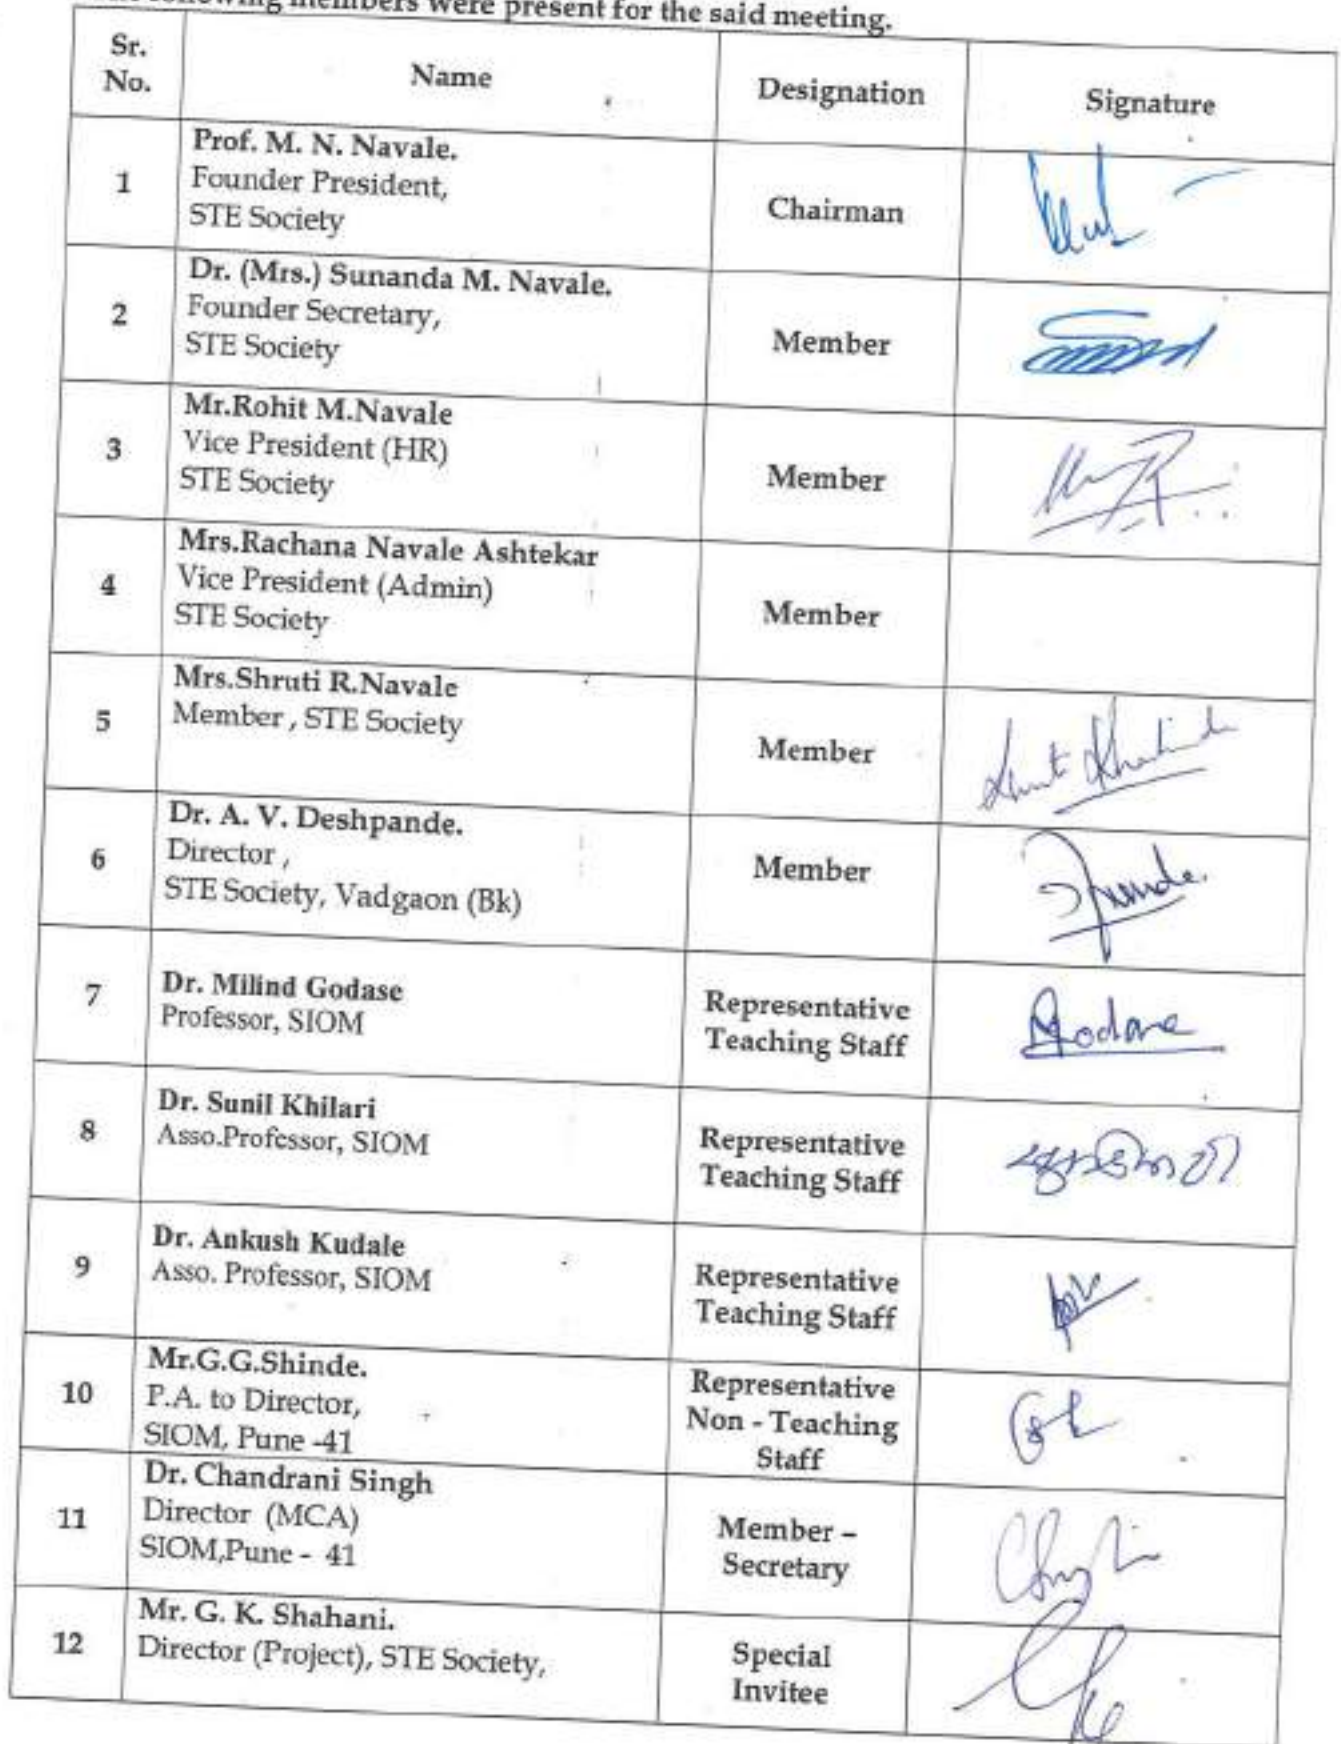 following members were present for the said meeting.
Sr. No. Name Designation Signature
1
Prof. M. N. Navale.
Founder President,
STE Society
Chairman
2
Dr. (Mrs.) Sunanda M. Navale.
Founder Secretary,
STE Society
Member
3
Mr.Rohit M.Navale
Vice President (HR)
STE Society
Member
4
Mrs.Rachana Navale Ashtekar
Vice President (Admin)
STE Society
Member
5
Mrs.Shruti R.Navale
Member , STE Society
Member
6
Dr. A. V. Deshpande.
Director ,
STE Society, Vadgaon (Bk)
Member
7
Dr. Milind Godase
Professor, SIOM
Representative
Teaching Staff
Godase
8
Dr. Sunil Khilari
Asso.Professor, SIOM
Representative
Teaching Staff
9
Dr. Ankush Kudale
Asso. Professor, SIOM
Representative
Teaching Staff
10
Mr.G.G.Shinde.
P.A. to Director,
SIOM, Pune -41
Representative
Non - Teaching
Staff
11
Dr. Chandrani Singh
Director (MCA)
SIOM,Pune - 41
Member –
Secretary
12
Mr. G. K. Shahani.
Director (Project), STE Society,
Special
Invitee